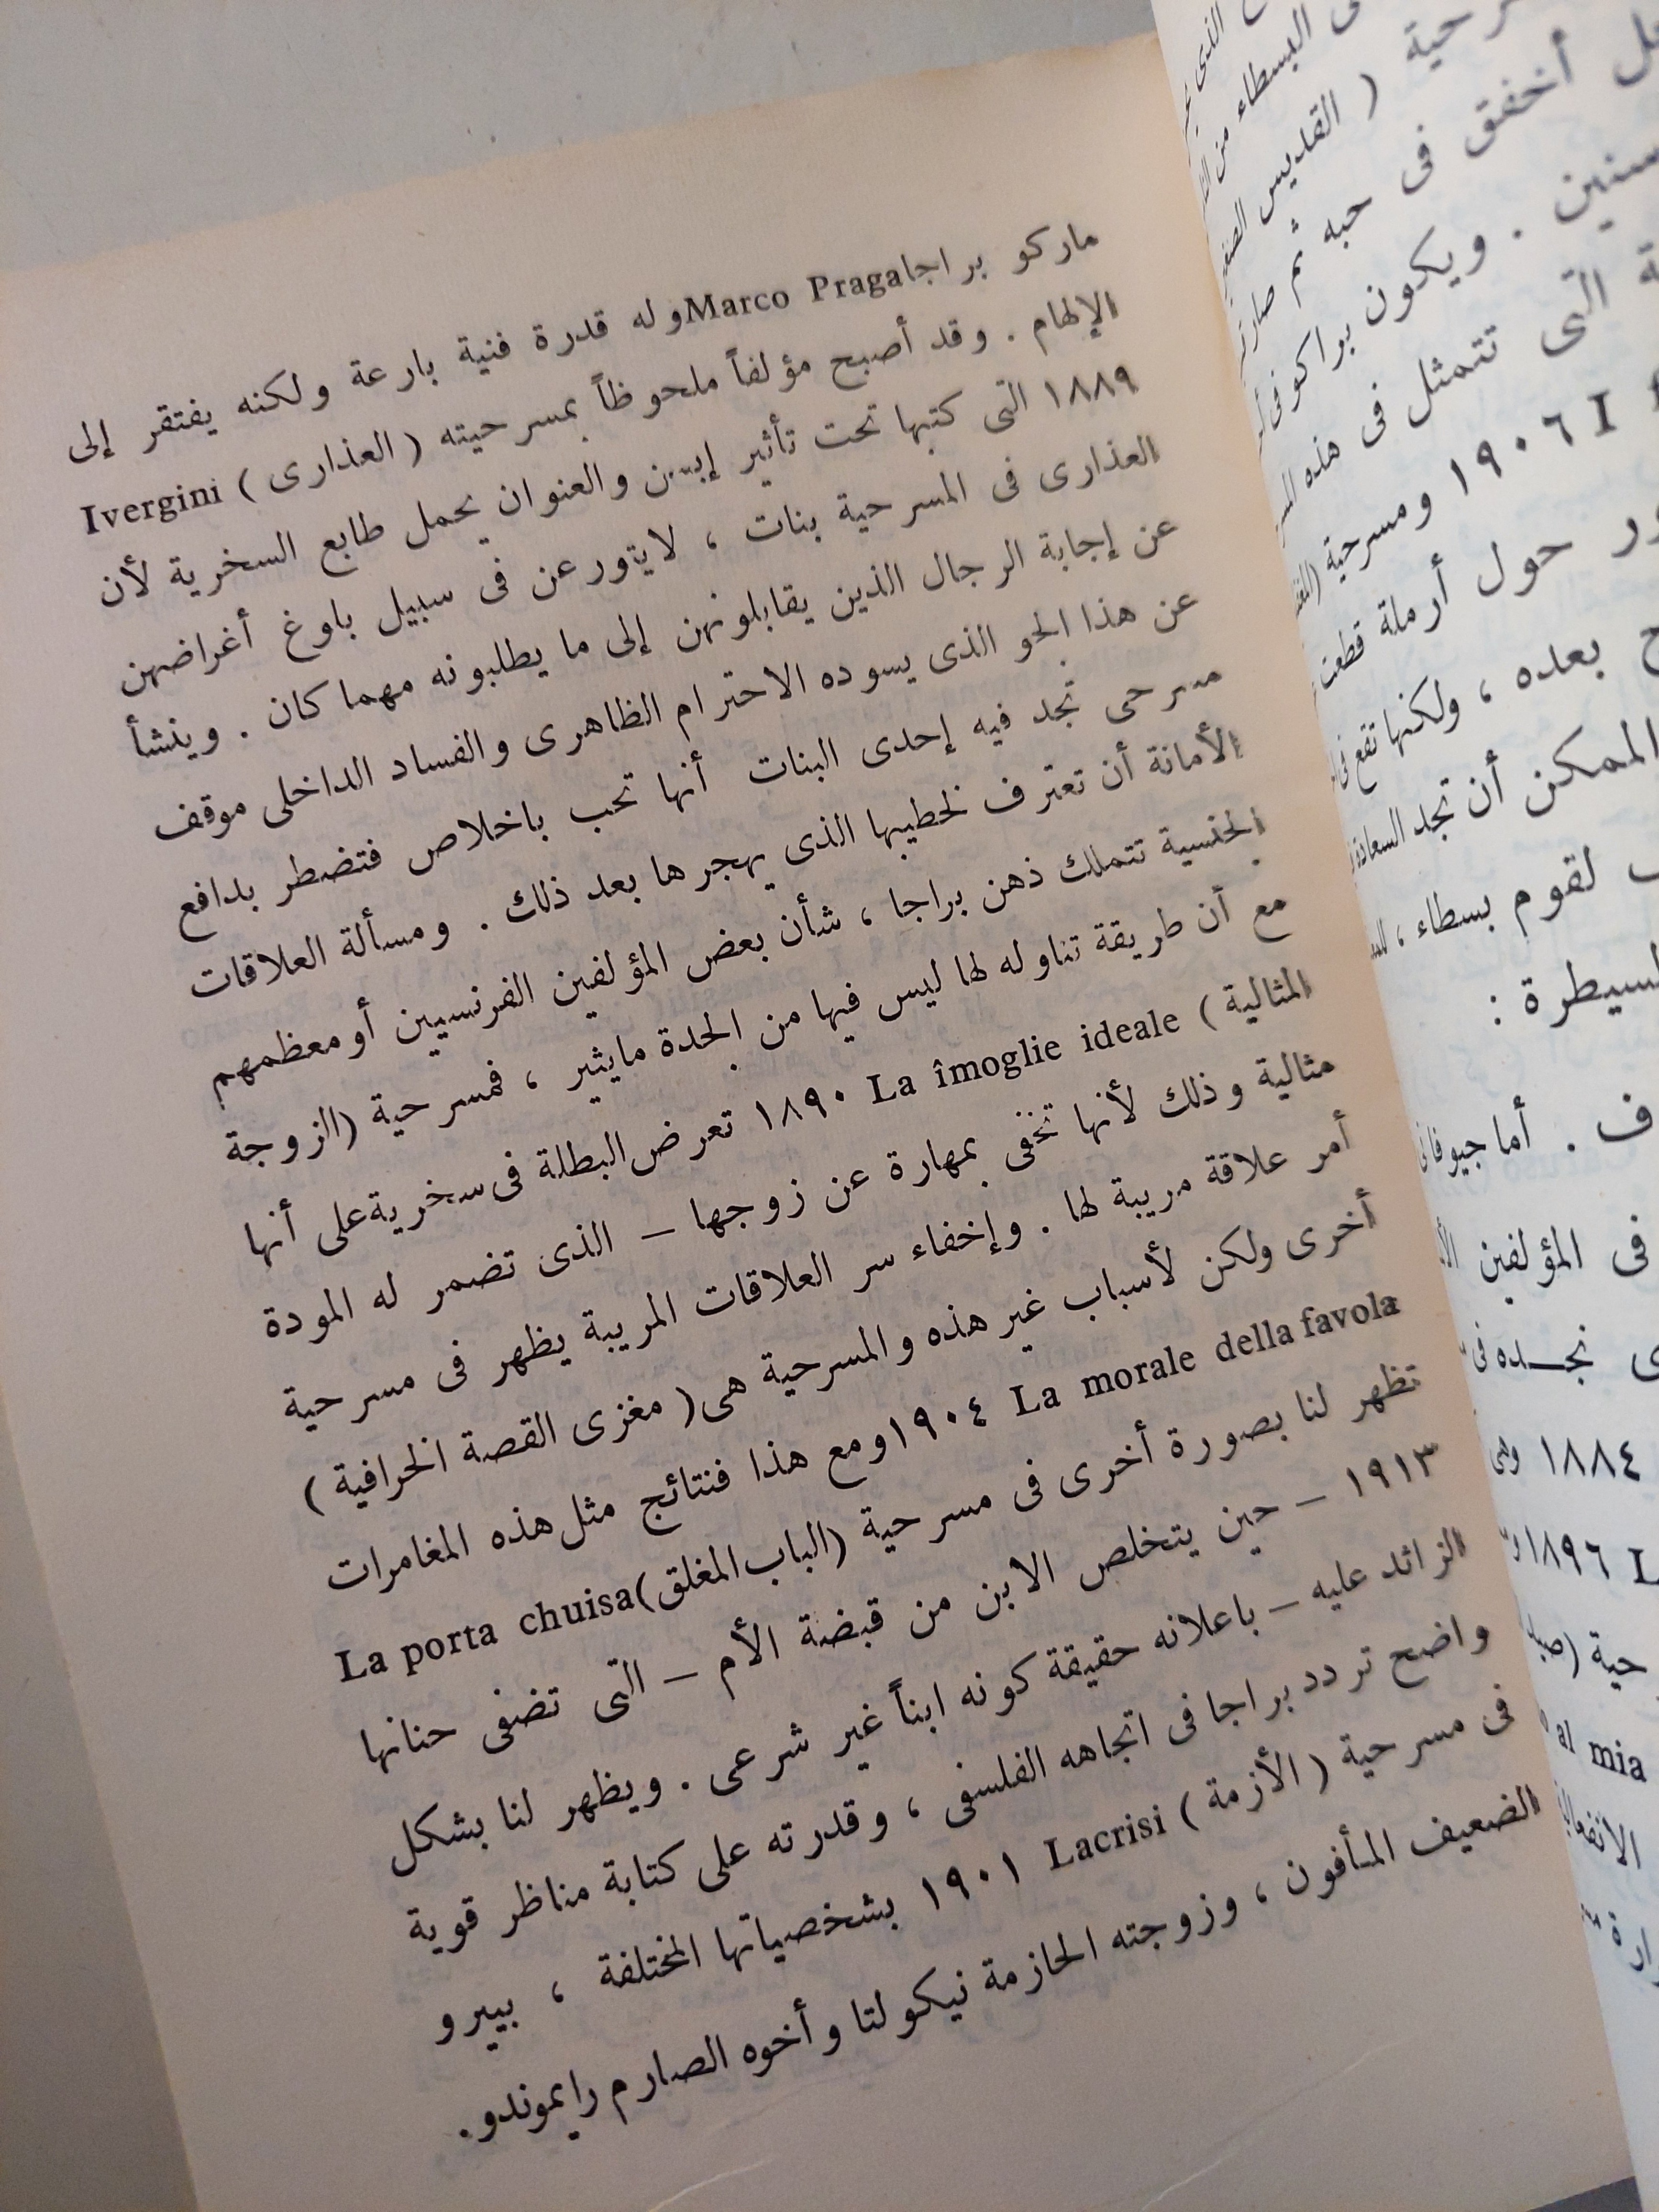 ماركو براجا Marco Praga وله قدرة فنية بارعة ولكنه يفتقر إلى
الإلهام . وقد أصبح مؤلفاً ملحوظاً بمسرحيته ( العذارى ) Ivergini
١٨٨٩ التى كتبها تحت تأثير إبسن والعنوان يحمل طابع السخرية لأن
العذارى فى المسرحية بنات ، لايتورعن فى سبيل بلوغ أغراضهن
عن إجابة الرجال الذين يقابلونهن إلى ما يطلبونه مهما كان . وينشأ
عن هذا الجو الذى يسوده الاحترام الظاهرى والفساد الداخلى موقف
مسرحى تجد فيه إحدى البنات أنها تحب باخلاص فتضطر بدافع
الأمانة أن تعترف لخطيبها الذى يهجرها بعد ذلك . ومسألة العلاقات
الجنسية تتملك ذهن براجا ، شأن بعض المؤلفين الفرنسيين أو معظمهم
مع أن طريقة تناوله لها ليس فيها من الجدة مايثير ، فمسرحية (الزوجة
المثالية ) La îmoglie ideale ١٨٩٠ تعرض البطلة فى سخرية على أنها
مثالية وذلك لأنها تخفى بمهارة عن زوجها – الذى تضمر له المودة
أمر علاقة مريبة لها . وإخفاء سر العلاقات المريبة يظهر فى مسرحية
أخرى ولكن لأسباب غير هذه والمسرحية هى ( مغزى القصة الخرافية )
La morale della favola ١٩٠٤ ومع هذا فنتائج مثل هذه المغامرات
تظهر لنا بصورة أخرى فى مسرحية (الباب المغلق) La porta chuisa
١٩١٣ – حين يتخلص الابن من قبضة الأم – التى تضفى حنانها
الزائد عليه – باعلانه حقيقة كونه ابناً غير شرعى . ويظهر لنا بشكل
واضح تردد براجا فى اتجاهه الفلسفى ، وقدرته على كتابة مناظر قوية
فى مسرحية ( الأزمة ) Lacrisi ١٩٠١ بشخصياتها المختلفة ، بيرو
الضعيف المأفون ، وزوجته الحازمة نيكولتا وأخوه الصارم رايموندو.
البسطاء من
حية ( القديس
أخفق فى حبه ثم
سنين . ويكون براكو فى
التى تتمثل فى هذه
I ١٩٠٦ ومسرحية
حول أرملة قطعت
بعده ، ولكنها تقع فى
الممكن أن تجد السعادة
لقوم بسطاء ،
:
. أما
فى المؤلفين
نجـده فى
١٨٨٤
١٨٩٦
al mia